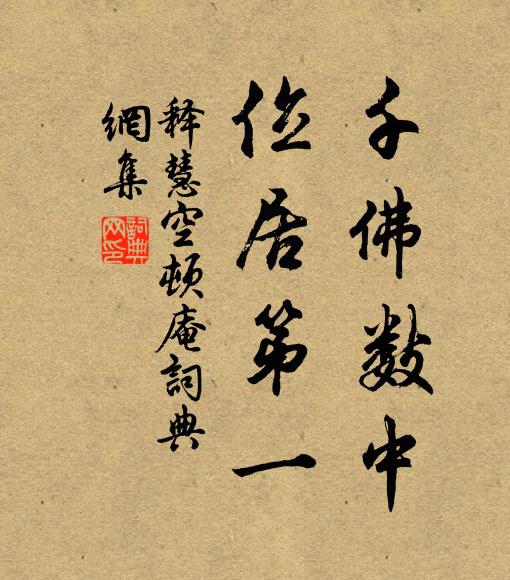 千佛数中
位居第一
释慧空顿庵詞典
網集
詞典网印